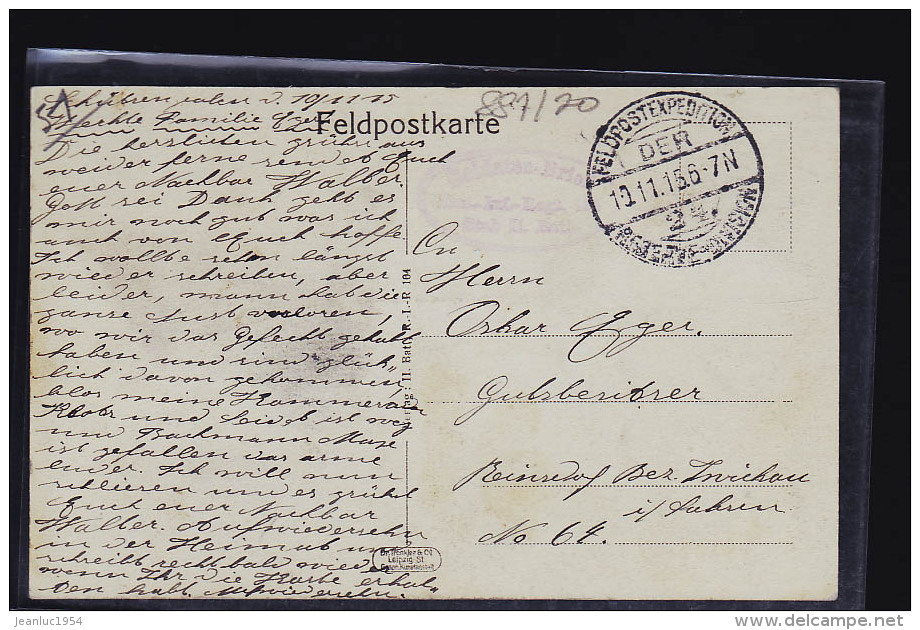 Schützengraben d. 10/11 15
887/20
Werthe Familie Eger
Feldpostkarte
Die herzlichen Grüße aus
weider ferne sendet Euch
euer Nachbar Walber.
Gott sei Dank geht es
mir noch gut was ich
auch von Euch hoffe.
Ich wollte schon längst
wieder schreiben, aber
leider, mann hat die
ganze Lust verloren,
wo wir das Gefecht gehabt
haben und sind glück„
lich davon gekommen,
blos meine Kammeraden
und Seidel ist weg
und Bachmann Max
ist gefallen der arme
leider. Ich will nun
schliesen und es grüßt
Euch euer Nachbar
Walber. Aufwiedersehn
in der Heimat und
schreibt recht bald wieder
wenn Ihr die Karte erhal„
ten habt. Aufwiedersehn.
FELDPOSTEXPEDITION
DER
10.11.15 6-7N
24.
RESERVE DIVISION
An
Herrn
Oskar Eger.
Gutsbesitzer
Reinsdorf Bez. Zwickau
i/ Sachsen
No 64.
II. Batl. R.-I.-R 104
Dr. Trenkler & Co
Leipzig-St.
jeanluc1954